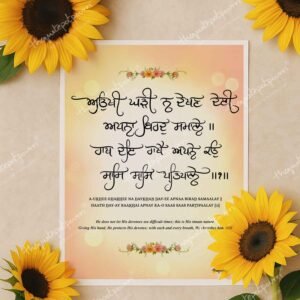 ਅਉਖੀ ਘੜੀ ਨ ਦੇਖਣ ਦੇਈ
ਅਪਨਾ ਬਿਰਦੁ ਸਮਾਲੇ ॥
ਹਾਥ ਦੇਇ ਰਾਖੈ ਅਪਨੇ ਕਉ
ਸਾਸਿ ਸਾਸਿ ਪ੍ਰਤਿਪਾਲੇ ॥੧॥
A-UKHEE GHARHEE NA DAYKHAN DAY-EE APNAA BIRAD SAMAALAY ||
HAATH DAY-AY RAAKHAI APNAY KA-O SAAS SAAS PARTIPAALAY ||1||
He does not let His devotees see difficult times; this is His innate nature.
Giving His hand, He protects His devotee; with each and every breath, He cherishes him.